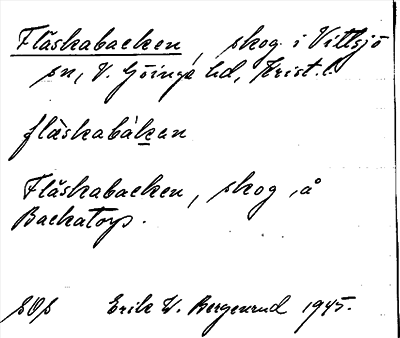 Flåskabacken, skog i Vittsjö
sn, V. Göinge hd, Krist. l.
flàskabákan
Flåskabacken, skog, å
Backatorp.
SOs Erik W. Bergenrud 1945.